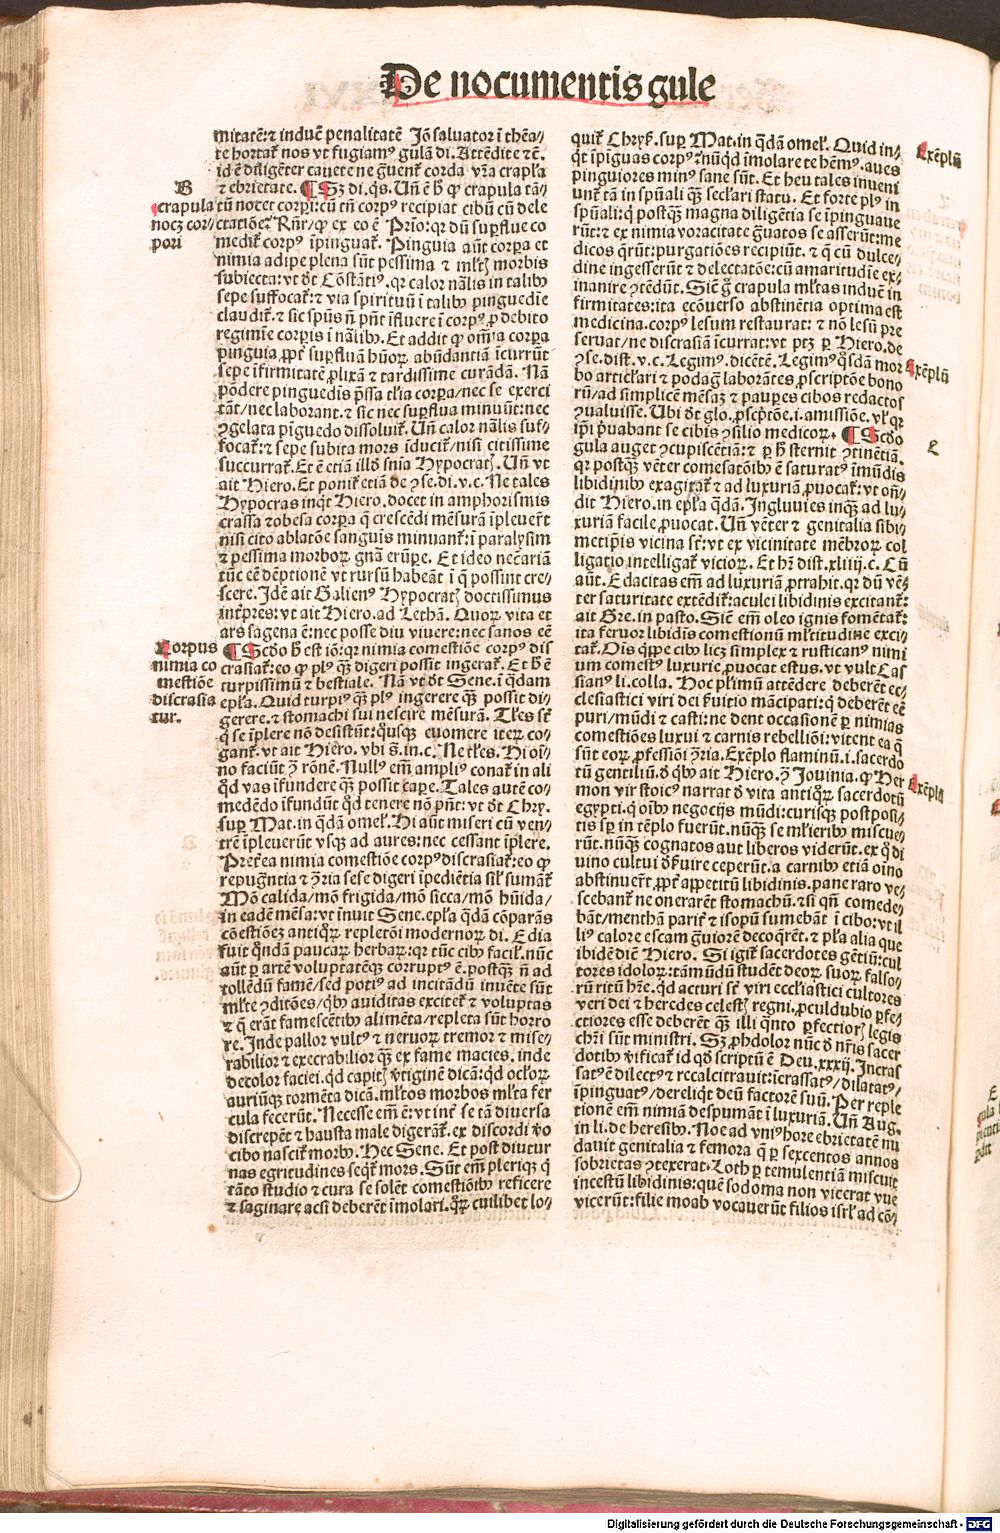 De nocumentis gule
mitatē: ⁊ inducē penalitatē Jō saluator ī thēa/
te hortat̄ nos vt fugiamꝰ gulā di. Attēdite ⁊c̄.
id ē diligēter cauete ne ḡuent̄ corda vr̄a crapl̄a
⁊ ebrietate. ¶ Sꝫ di. q̄s. Uñ ē h̄ ꝙ crapula tā/
B
crapula
nocꝫ cor/
pori
tū nocet corꝑi: cū tñ corpꝰ recipiat cibū cū dele
ctatiōe? Rñr/ ꝙ ex eo ē Prīo: qꝛ dū suꝑflue co
medit̄ corpꝰ īpinguat̄. Pinguia aūt corꝑa et
nimia adipe plena sūt pessima ⁊ ml̄tꝭ morbis
subiecta: vt dt̄ Cōstātiꝰ. qꝛ calor nālis in talibꝰ
sepe suffocat̄: ⁊ via spirituū ī talibꝰ pinguedīe
claudit̄: ⁊ sic spūs ñ pñt īfluere ī corpꝰ ꝓ debito
regimīe corꝑis ī nālibꝰ. Et addit ꝙ oīa corꝑa
pinguia ꝓpt̄ suꝑfluā hūoꝝ abūdantiā īcurrūt
sepe īfirmitatē ꝓlixā ⁊ tardissime curādā. Nā
pōdere pinguedīs p̄ssa tl̄ia corꝑa/ nec se exerci
tāt/ nec laborant. ⁊ sic nec suꝑflua minuūt: nec
ꝯgelata pīguedo dissoluit̄. Uñ calor nālis suf/
focat̄: ⁊ sepe subita mors īducit̄/ nisi citissime
succurrat̄. Et ē etiā illd̄ sn̄ia Hypocratꝭ. Uñ vt
ait Hiero. Et ponit̄ etiā de ꝯse. di. v. c. Ne tales
Hypocras inqt̄ Hiero. docet in amphorismis
crassa ⁊ obesa corꝑa q̄ crescēdi mēsurā īpleuer̄t
nisi cito ablatōe sanguīs minuant̄: ī paralysim
⁊ pessima morboꝝ gn̄a erūpe. Et ideo necc̄ariā
tūc eē dēptionē vt rursū habeāt ī q̄ possint cre/
scere. Idē ait Galienꝰ Hypocratꝭ doctissimus
int̄pres: vt ait Hiero. ad Lethā. Quoꝝ vita et
ars sagena ē: nec posse diu viuere: nec sanos eē
Corpus
nimia co
mestiōe
discrasia
tur.
¶ Scd̄o h̄ est iō: qꝛ nimia comestiōe corpꝰ dis
crasiat̄: eo ꝙ plꝰ qꝫ digeri possit ingerat̄. Et h̄ ē
turpissimū ⁊ bestiale. Nā vt dt̄ Sene. ī q̄dam
epl̄a. Quid turpiꝰ qꝫ plꝰ ingerere qꝫ possit di/
gerere. ⁊ stomachi sui nescire mēsurā. Tl̄es st̄
q̄ se īplere nō desistūt: q̄usqꝫ euomere iteꝝ co/
gant̄. vt ait Hiero. vbi s̄. in. c. Ne tl̄es. Hi oī/
no faciūt ꝯ̄ rōnē. Nullꝰ em̄ ampliꝰ conat̄ in ali
q̄d vas īfundere qꝫ possit caꝑe. Tales autē co/
medēdo īfundūt q̄d tenere nō pñt: vt dt̄ Chry.
suꝑ Mat. in q̄dā omel̄. Hi aūt miseri cū ven/
trē īpleuerūt vsqꝫ ad aures: nec cessant īplere.
Preterea nimia comestiōe corpꝰ discrasiat̄: eo ꝙ
repugn̄tia ⁊ ꝯ̄ria sese digeri īpediētia sil̄ sumāt̄
Mō calida/ mō frigida/ mō sicca/ mō hūida/
in eadē mēsa: vt īnuit Sene. epl̄a q̄dā cōparās
cōestiōeꝫ antiqꝝ repletōi modernoꝝ di. Edia
fuit q̄ndā paucaꝝ herbaꝝ: qꝛ tūc cibꝰ facil̄. nūc
aūt ꝑ artē voluptatēqꝫ corruptꝰ ē. postqꝫ ñ ad
tollēdū famē/ sed potiꝰ ad incitādū inuēte sūt
ml̄te ꝯditōes/ q̄bꝰ auiditas excitet̄ ⁊ voluptas
⁊ q̄ erāt famescētibꝰ alimēta/ repleta sūt horro
re. Inde pallor vultꝰ ⁊ neruoꝝ tremor ⁊ mise/
rabilior ⁊ execrabilior qꝫ ex fame macies. inde
decolor faciei. qd̄ capitꝭ v̄tiginē dicā: qd̄ ocl̄oꝝ
auriūqꝫ tormēta dicā. ml̄tos morbos ml̄ta fer
cula fecerūt. Necesse em̄ ē: vt int̄ se tā diuersa
discrepēt ⁊ hausta male digerāt̄. ex discordi v̄o
cibo nascit̄ morbꝰ. Hec Sene. Et post diutur
nas egritudines seqt̄ mors. Sūt em̄ pleriqꝫ q̄
tāto studio ⁊ cura se solēt comestiōibꝰ reficere
⁊ saginare acsi deberēt īmolari. q̄ꝝ cuilibet lo/
quit̄ Chryß. suꝑ Mat. in q̄dā omel̄. Quid in/
Exēplū
qt̄ īpīguas corpꝰ? nūqd̄ īmolare te hēmꝰ. aues
pinguiores minꝰ sane sūt. Et heu tales inueni
unt̄ tā in spūali qꝫ secl̄ari statu. Et forte plꝰ in
spūali: q̄ postqꝫ magna diligētia se īpinguaue
rūt: ⁊ ex nimia voracitate ḡuatos se asserūt: me
dicos q̄rūt: purgatiōes recipiūt. ⁊ q̄ cū dulce/
dine ingesserūt ⁊ delectatōe: cū amaritudīe ex/
inanire ꝯtēdūt. Sic̄ g̃ crapula ml̄tas inducē in
firmitates: ita ecōuerso abstinētia optima est
medicina. corpꝰ lesum restaurat: ⁊ nō lesū pre
seruat/ ne discrasiā īcurrat: vt ptꝫ ꝑ Hiero. de
ꝯse. dist. v. c. Legimꝰ. dicētē. Legimꝰ q̄sdā mor
Exēplū
bo articl̄ari ⁊ podag̃ laborātes ꝓscriptōe bono
rū/ ad simplicē mēsaꝫ ⁊ pauꝑes cibos redactos
ꝯualuisse. Ubi dt̄ glo. ꝓscptōe. i. amissiōe. vl̄ qꝛ
ip̄i p̄uabant se cibis ꝯsilio medicoꝝ. ¶ Scd̄o
C
gula auget ꝯcupiscētiā: ⁊ ꝑ h̄ sternit ꝯtinētiā.
qꝛ postqꝫ vēter comesatōibꝰ ē saturatꝰ īmūdis
libidinibꝰ exagitat̄ ⁊ ad luxuriā ꝓuocat̄: vt oñ/
dit Hiero. in epl̄a q̄dā. Ingluuies inqꝫ ad lu/
xuriā facile ꝓuocat. Uñ vēter ⁊ genitalia sibi/
metip̄is vicina st̄: vt ex vicinitate mēbroꝝ col
ligatio intelligat̄ vicioꝝ. Et hr̄ dist. xliiij. c. Cū
aūt. Edacitas em̄ ad luxuriā ꝓtrahit. qꝛ dū vē/
ter saturitate extēdit̄: aculei libidinis excitant̄:
ait Gre. in pasto. Sic̄ em̄ oleo ignis fomētat̄:
ita feruor libidīs comestionū ml̄titudīe exci/
tat̄. Oīs qꝑpe cibꝰ licꝫ simplex ⁊ rusticanꝰ nimi
um comestꝰ luxurie ꝓuocat estus. vt vult Cas
sianꝰ li. colla. Hoc pl̄imū attēdere deberēt ec/
clesiastici viri dei ẜuitio mācipati: q̄ deberēt eē
puri/ mūdi ⁊ casti: ne dent occasionē ꝑ nimias
comestiōes luxui ⁊ carnis rebelliōi: vitent ea q̄
sūt eoꝝ ꝓfessiōi ꝯ̄ria. Exēplo flaminū. i. sacerdo
tū gentiliū. d̄ qbꝰ ait Hiero. ꝯ̄ Jouinia. ꝙ Her
Exēplū
mon vir stoicꝰ narrat d̄ vita antiq̄ꝝ sacerdotū
egypti. q̄ oībꝰ negocijs mūdi: curisqꝫ postposi/
tis sꝑ in tēplo fuerūt. nūqꝫ se ml̄ieribꝰ miscue/
rūt. nūqꝫ cognatos aut liberos viderūt. ex q̄ di
uino cultui d̄ẜuire ceperūt. a carnibꝰ etiā oīno
abstinuer̄t. ꝓpt̄ appetitū libidinis. pane raro ve/
scebant̄ ne onerarēt stomachū. ⁊ si qñ comede/
bāt/ menthā parit̄ ⁊ isopū sumebāt ī cibo: vt il
liꝰ calore escam ḡuiorē decoq̄rēt. ⁊ pl̄a alia que
ibidē dicit Hiero. Si igit̄ sacerdotes gētiū: cul
tores idoloꝝ: tā mūdū studēt deoꝝ suoꝝ falso/
rū ritū hr̄e. qd̄ acturi st̄ viri eccl̄iastici cultores
veri dei ⁊ heredes celestꝭ regni. ꝓculdubio ꝑfe/
ctiores esse deberēt qꝫ illi q̄nto ꝑfectiorꝭ legis
chr̄i sūt ministri. Sꝫ ꝓhdolor nūc d̄ nr̄is sacer
dotibꝰ v̄ificat̄ id qd̄ scriptū ē Deu. xxxij. Incras
satꝰ ē dilectꝰ ⁊ recalcitrauit: īcrassatꝰ/ dilatatꝰ/
īpinguatꝰ/ dereliqt̄ deū factorē suū. Per reple
tionē em̄ nimiā despumāt ī luxuriā. Uñ Aug.
in li. de heresibꝰ. Noe ad vniꝰ hore ebrietatē nu
dauit genitalia ⁊ femora q̄ ꝑ sexcentos annos
sobrietas ꝯtexerat. Loth ꝑ temulentiā miscuit
incestū libidinis: quē sodoma non vicerat vue
vicerūt: filie moab vocauerūt filios isrl̄ ad cō/
Digitalisierung gefördert durch die Deutsche Forschungsgemeinschaft - DFG